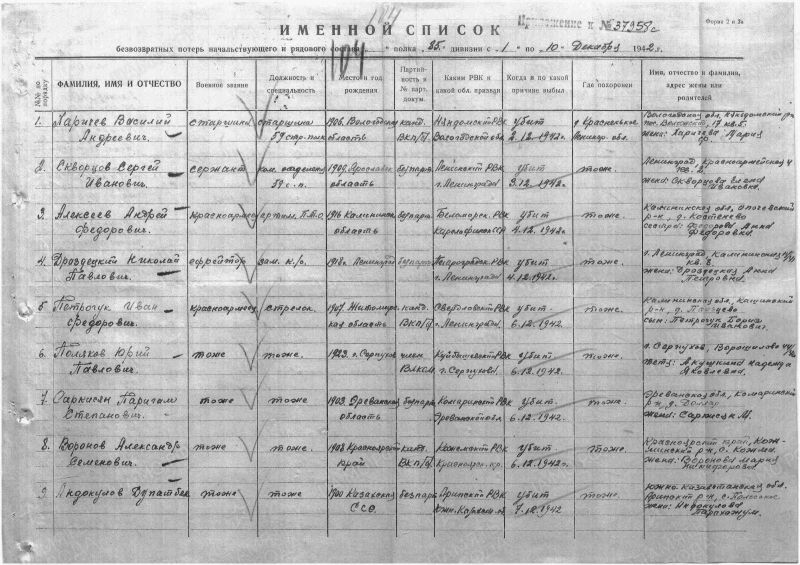 104
Приложение к № 37958с
Форма 2 и 3а
ИМЕННОЙ СПИСОК
безвозвратных потерь начальствующего и рядового состава полка 85. дивизии с 1 по 10 Декабря 1942 г.
104
№№ по порядку
ФАМИЛИЯ, ИМЯ И ОТЧЕСТВО
Военное звание
Должность и специальность
Место и год рождения
Партийность и № парт. докум.
Каким РВК и какой обл. призван
Когда и по какой причине выбыл
Где похоронен
Имя, отчество и фамилия, адрес жены или родителей
1. Харичев Василий Андреевич.
старшина
старшина 59 стр. полк
1906. Вологодская область
канд. ВКп/б/
Няндомский РВК Вологодской обл.
убит 2.12.1942г.
д Красненькое Ленингр. обл.
жена: Харичева Мария
2. Скворцов Сергей Иванович.
сержант
ком. отделения 59 с.п.
1909. Ярославск область
безпарт.
Ленинский РВК г. Ленинграда
убит 3.12.1942г.
тоже.
Ленинград, Красноармейская
жена: Скворцова Елена Ивановна
3. Алексеев Андрей Федорович.
красноармеец
1916 Калининск область.
безпарт.
Беломорск. РВК Карелофинск ССР
убит 4.12.1942г.
тоже.
Калининская обл, Опочевский р-н, д. Костенево
сестра: Федорова Анна Федоровна
4. Дроздецкий Николай Павлович.
ефрейтор
1918г. Ленинград
безпарт
г. Ленинграда
убит 4.12.1942г.
тоже.
г. Ленинград, Калининская
жена: Дроздецкая Анна Петровна
5 Петрочук Иван Федорович.
красноармеец
стрелок.
1907. Житомирская область
канд. ВКп/б/
Свердловский РВК г. Ленинграда
убит. 6.12.1942.
тоже.
Калининская обл, Кашинский р-н, д.
сын: Петрочук Борис Иванович.
6. Поляков Юрий Павлович.
тоже
тоже.
1923. г. Серпухов
член ВЛКСМ.
Куйбышевский РВК г. Серпухова
убит 6.12.1942г.
тоже.
г. Серпухов, Ворошилова
тетя: Акушкина Надежда Яковлевна
7. Саркисян Парисам Степанович.
тоже
тоже.
1903. Ереванская область
безпарт
Комаринский РВК Ереванской обл
убит 6.12.1942.
тоже.
Ереванская обл, Комаринский р-н, д. Доллар.
жена: Саркисян М.
8. Воронов Александр Семенович.
тоже
тоже.
1908. Красноярский край
канд. ВКп/б/
Красноярск. кр.
убит. 6.12.1942г.
тоже.
Красноярский край,
жена: Воронова Мария Никифоровна
9
тоже
тоже
1900 Казахская ССР
безпарт
РВК
убит 7.12.1942
тоже.
Южно-Казахстанская обл.